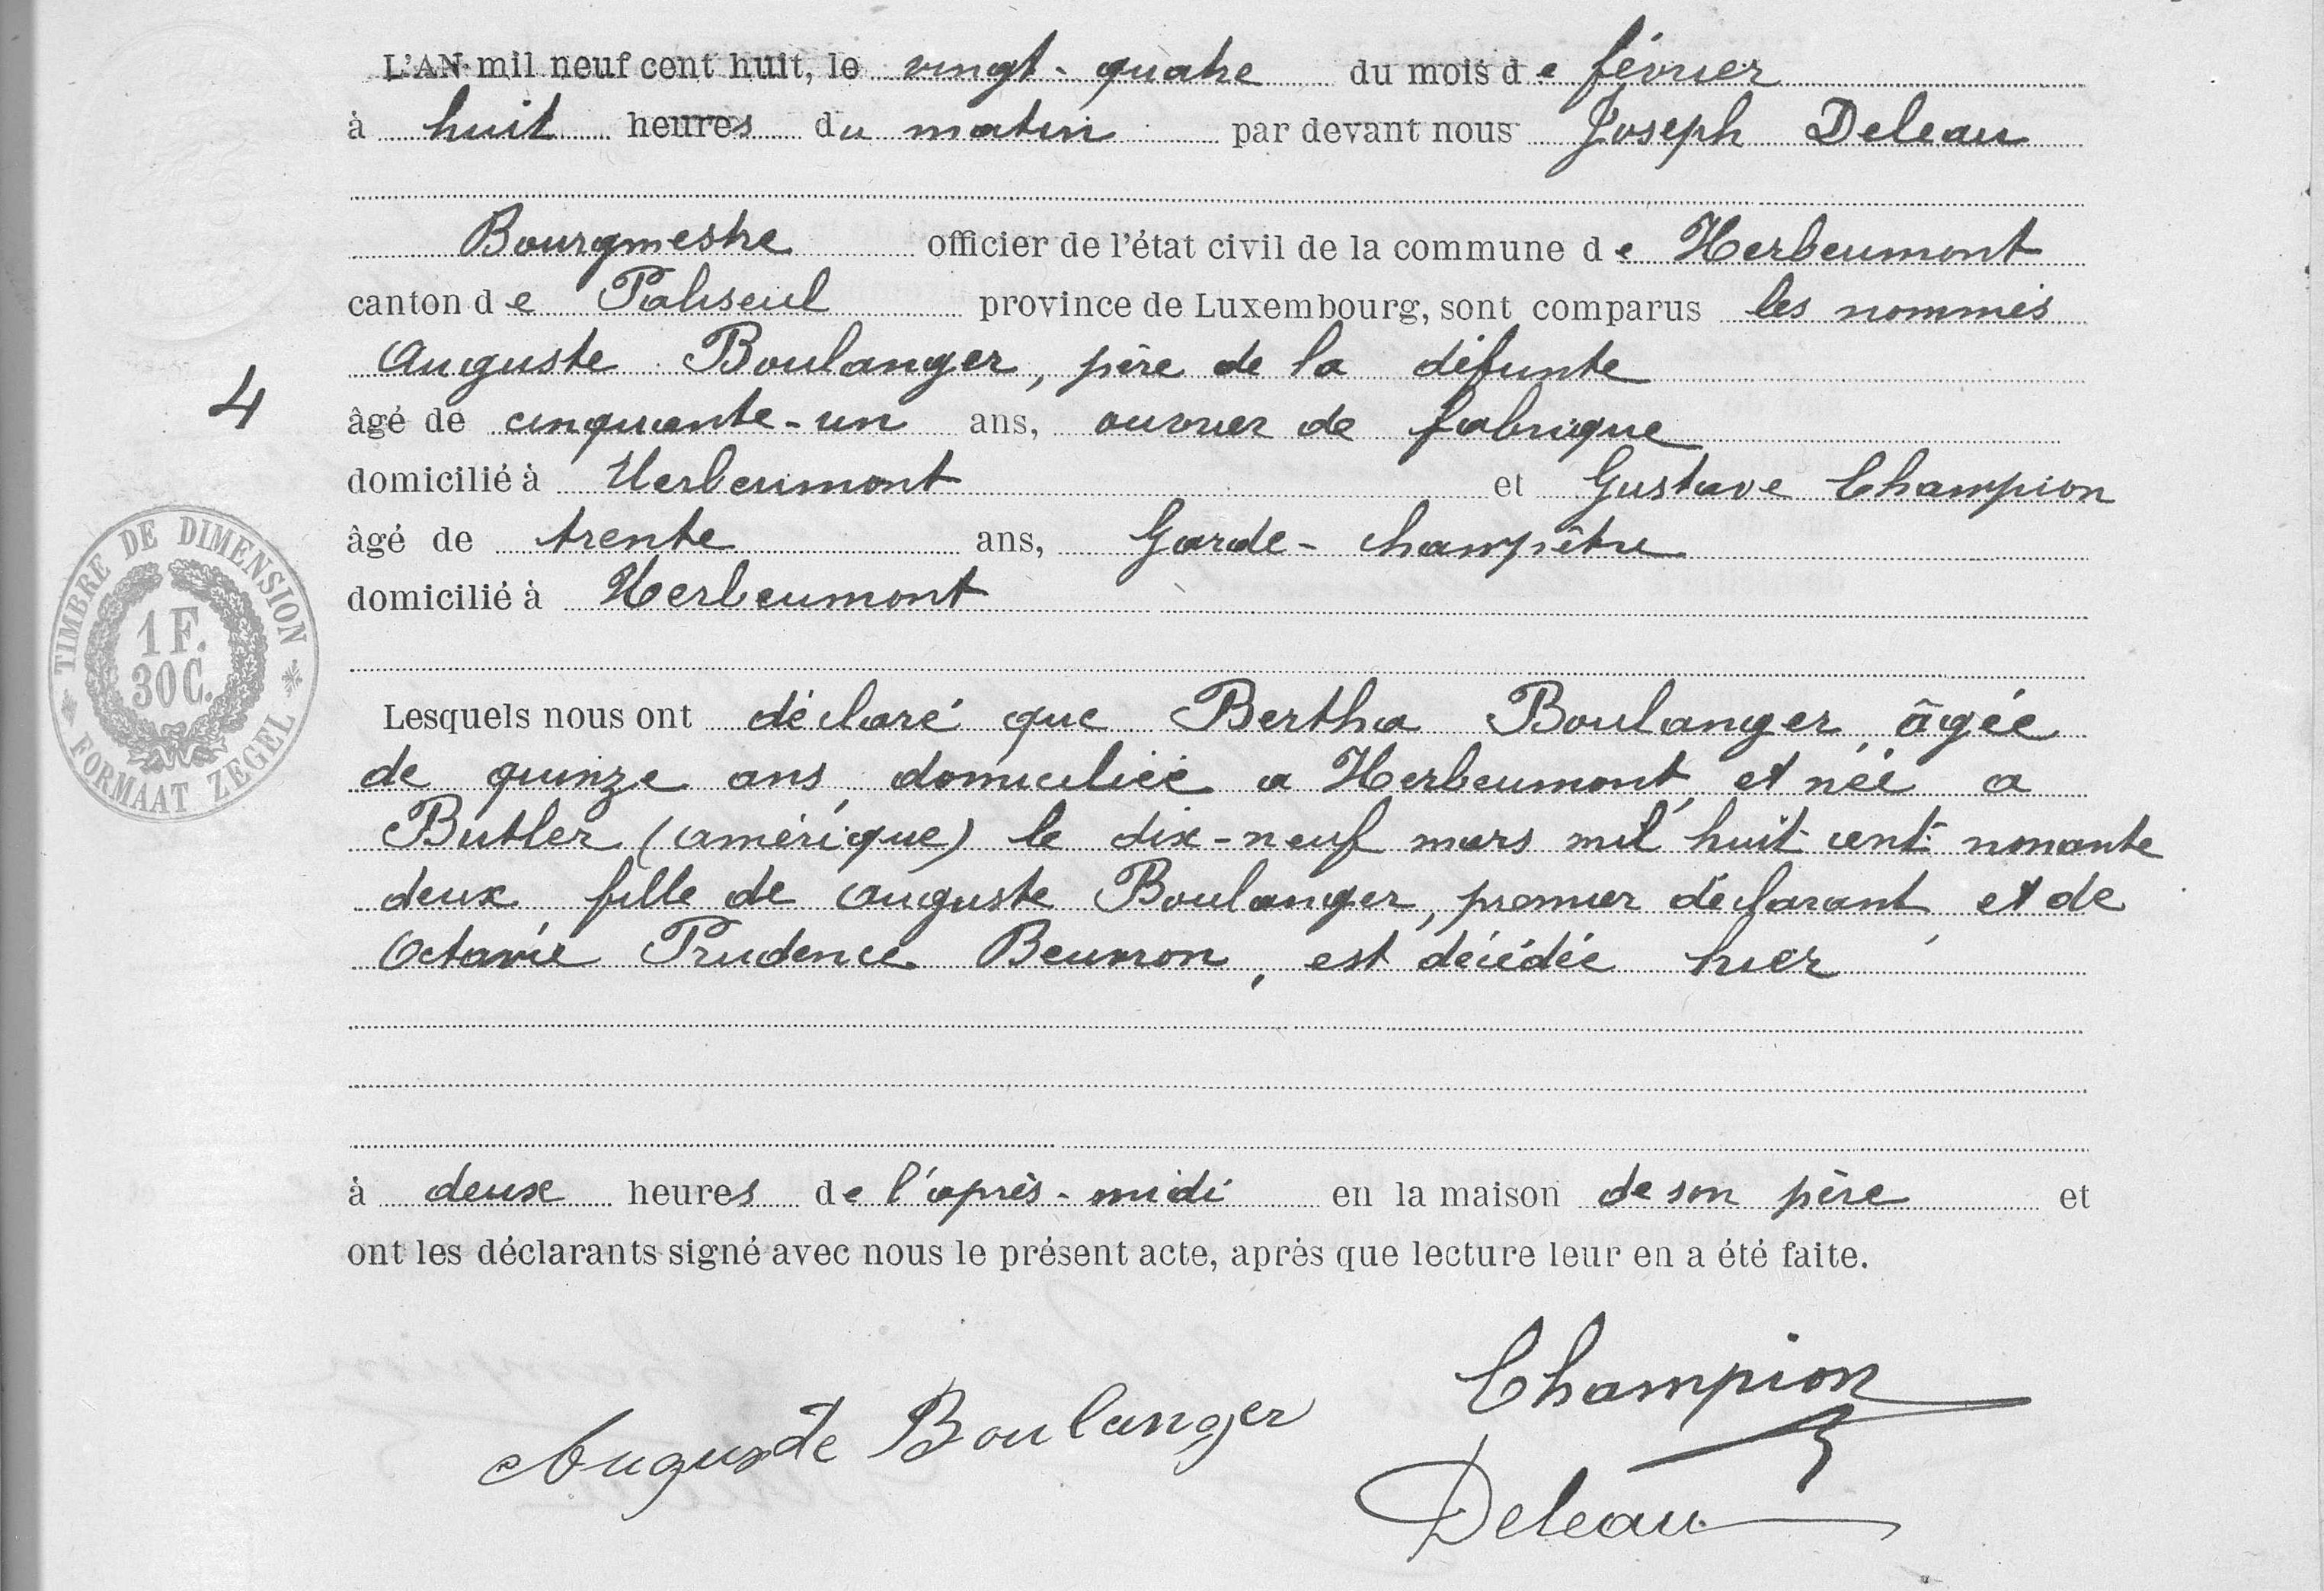 L'AN mil neuf cent huit, le vingt-quatre du mois de février
à huit heures du matin par devant nous Joseph Deleau
Bourgmestre officier de l'état civil de la commune de Herbeumont
canton de Paliseul province de Luxembourg, sont comparus les nommés
Auguste Boulanger, père de la défunte
4
âgé de cinquante-un ans, ouvrier de fabrique
domicilié à Herbeumont et Gustave Champion
âgé de trente ans, Garde-champêtre
domicilié à Herbeumont
TIMBRE DE DIMENSION
1 F.
30 C.
FORMAAT ZEGEL
Lesquels nous ont déclaré que Bertha Boulanger, âgée
de quinze ans, domiciliée a Herbeumont, et née a
Butler (amérique) le dix-neuf mars mil huit cent nonante
deux fille de Auguste Boulanger, premier déclarant et de
Octavie Prudence , est décédée hier
à deux heures de l'après-midi en la maison de son père et
ont les déclarants signé avec nous le présent acte, après que lecture leur en a été faite.
Champion
Auguste Boulanger
Deleau